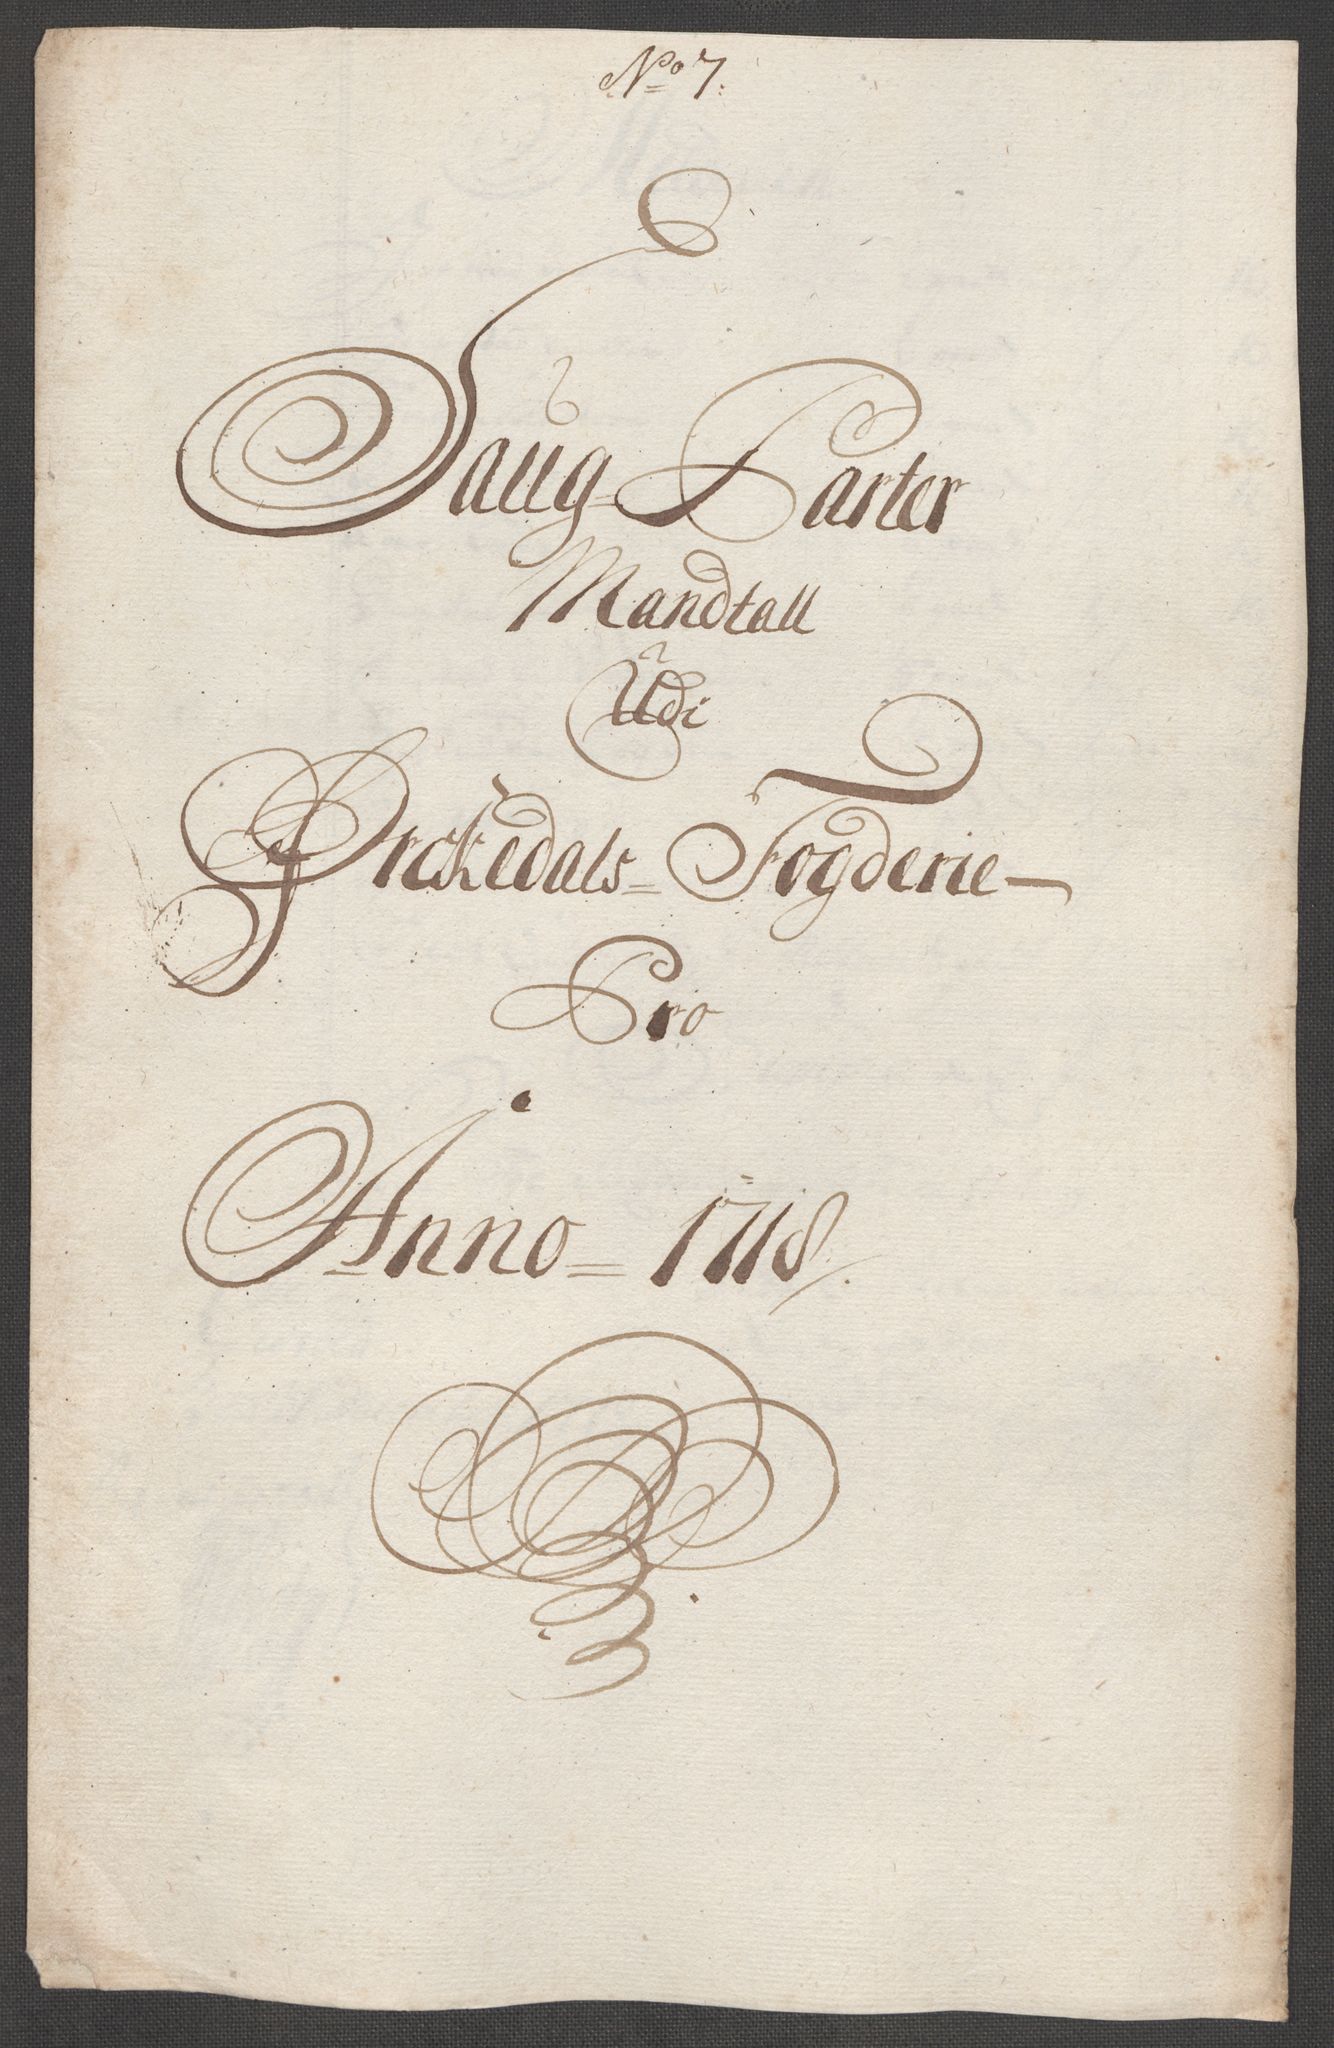 No 7.
Saug-Parter
Mandtall
Udi
Ørckedals= Fogderie—
Pro
Anno= 1718.